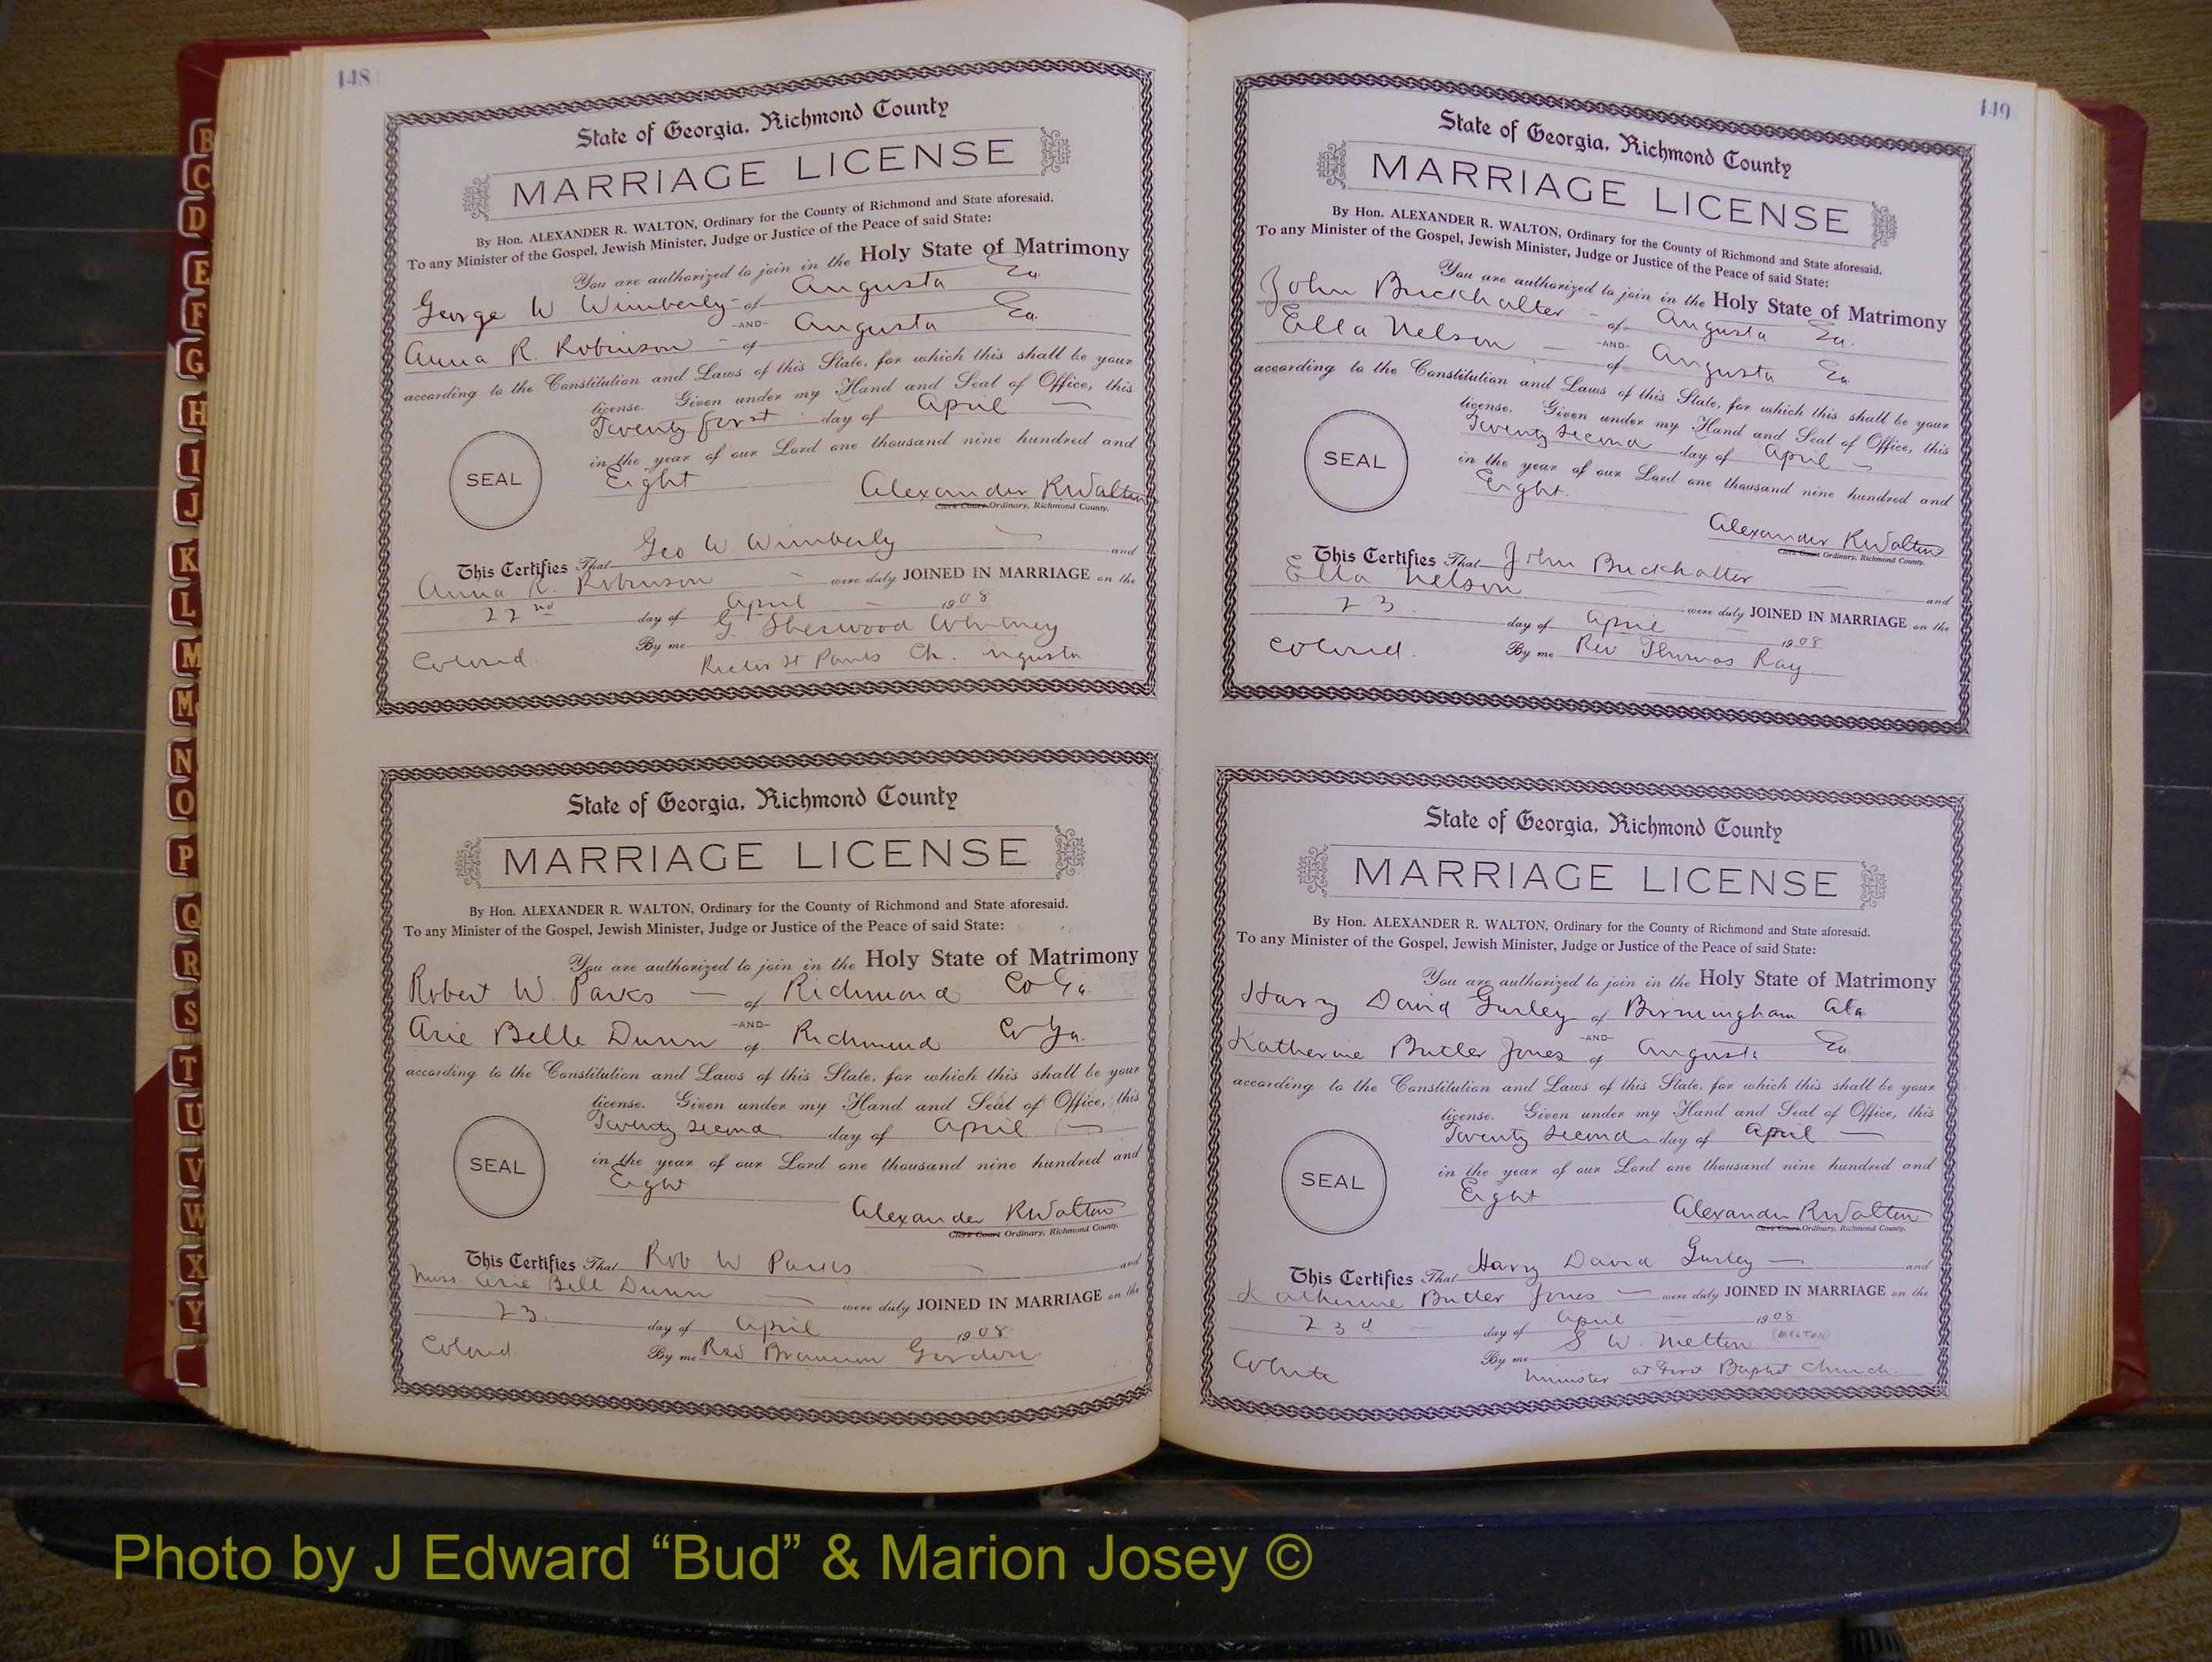 148
State of Georgia, Richmond County
MARRIAGE LICENSE
By Hon. ALEXANDER R. WALTON, Ordinary for the County of Richmond and State aforesaid.
To any Minister of the Gospel, Jewish Minister, Judge or Justice of the Peace of said State:
You are authorized to join in the Holy State of Matrimony
George W Wimberly - of Augusta Ga
-AND-
Anna R. Robinson - of Augusta Ga.
according to the Constitution and Laws of this State, for which this shall be your
license. Given under my Hand and Seal of Office, this
Twenty first day of April
in the year of our Lord one thousand nine hundred and
SEAL
Eight
Alexander R Walton
Clerk Court Ordinary, Richmond County.
This Certifies That Geo W Wimberly and
Anna R. Robinson were duly JOINED IN MARRIAGE on the
22nd day of April 1908
By me G. Sherwood Whitney
Colored. Rector St Pauls Ch.
State of Georgia, Richmond County
MARRIAGE LICENSE
By Hon. ALEXANDER R. WALTON, Ordinary for the County of Richmond and State aforesaid.
To any Minister of the Gospel, Jewish Minister, Judge or Justice of the Peace of said State:
You are authorized to join in the Holy State of Matrimony
Robert W. Parks - of Richmond Co Ga
-AND-
Arie Belle Dunn of Richmond Co Ga.
according to the Constitution and Laws of this State, for which this shall be your
license. Given under my Hand and Seal of Office, this
Twenty second day of April
in the year of our Lord one thousand nine hundred and
SEAL
Eight
Alexander R Walton
Clerk Court Ordinary, Richmond County.
This Certifies That Rob W Parks and
Miss Arie Bell Dunn were duly JOINED IN MARRIAGE on the
23. day of April 1908
Colored By me Rev Gordon
149
State of Georgia, Richmond County
MARRIAGE LICENSE
By Hon. ALEXANDER R. WALTON, Ordinary for the County of Richmond and State aforesaid.
To any Minister of the Gospel, Jewish Minister, Judge or Justice of the Peace of said State:
You are authorized to join in the Holy State of Matrimony
John Buckhalter - of Augusta Ga.
-AND-
Ella Nelson - of Augusta Ga
according to the Constitution and Laws of this State, for which this shall be your
license. Given under my Hand and Seal of Office, this
Twenty second day of April
in the year of our Lord one thousand nine hundred and
SEAL
Eight.
Alexander R Walton
Clerk Court Ordinary, Richmond County.
This Certifies That John Buckhalter and
Ella Nelson were duly JOINED IN MARRIAGE on the
23. day of April 1908
Colored. By me Rev Thomas Ray
State of Georgia, Richmond County
MARRIAGE LICENSE
By Hon. ALEXANDER R. WALTON, Ordinary for the County of Richmond and State aforesaid.
To any Minister of the Gospel, Jewish Minister, Judge or Justice of the Peace of said State:
You are authorized to join in the Holy State of Matrimony
Harry David Gurley of Birmingham Ala
-AND-
Katherine Butler Jones of Augusta Ga
according to the Constitution and Laws of this State, for which this shall be your
license. Given under my Hand and Seal of Office, this
Twenty second day of April
in the year of our Lord one thousand nine hundred and
SEAL
Eight
Alexander R Walton
Clerk Court Ordinary, Richmond County.
This Certifies That Harry David Gurley and
Katherine Butler Jones were duly JOINED IN MARRIAGE on the
23d day of April 1908
By me S W. Melton (MELTON)
White Minister at First Baptist Church.
B
C
D
E
F
G
H
I
J
K
L
M
Mc
N
O
P
Q
R
S
T
U
V
W
X
Y
Photo by J Edward “Bud” & Marion Josey ©